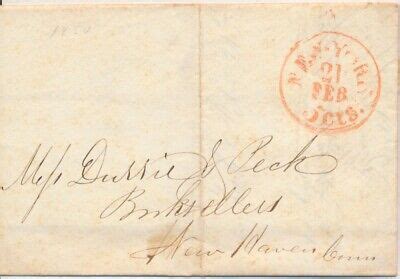 1850
NEW-YORK
21
FEB
5 CTS.
Mess Durrie & Peck
Booksellers
New Haven Conn